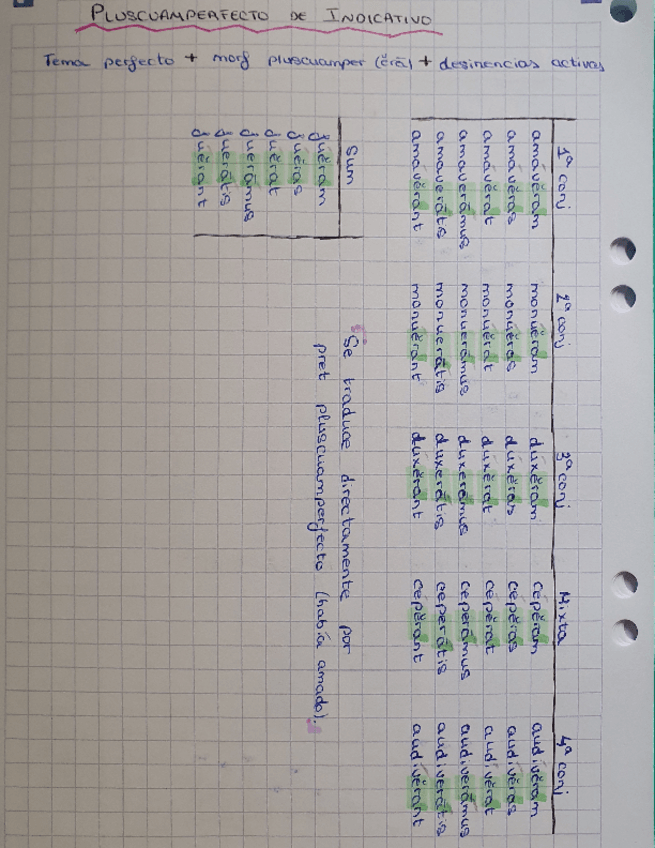 PLUSCUAMPERFECTO DE INDICATIVO
Tema perfecto + morf pluscuamper (ĕrā) + desinencias activas
1ª conj 2ª conj 3ª conj Mixta 4ª conj
amávĕram monúĕram dúxĕram cépĕram audívĕram
amávĕras monúĕras dúxĕras cépĕras audívĕras
amávĕrat monúĕrat dúxĕrat cépĕrat audívĕrat
amaverāmus monuerāmus duxerāmus ceperāmus audiverāmus
amaverātis monuerātis duxerātis ceperātis audiverātis
amávĕrant monúĕrant dúxĕrant cépĕrant audívĕrant
Sum
fúĕram
fúĕras
fúĕrat
fuerāmus
fuerātis
fúĕrant
Se traduce directamente por
pret pluscuamperfecto (había amado).